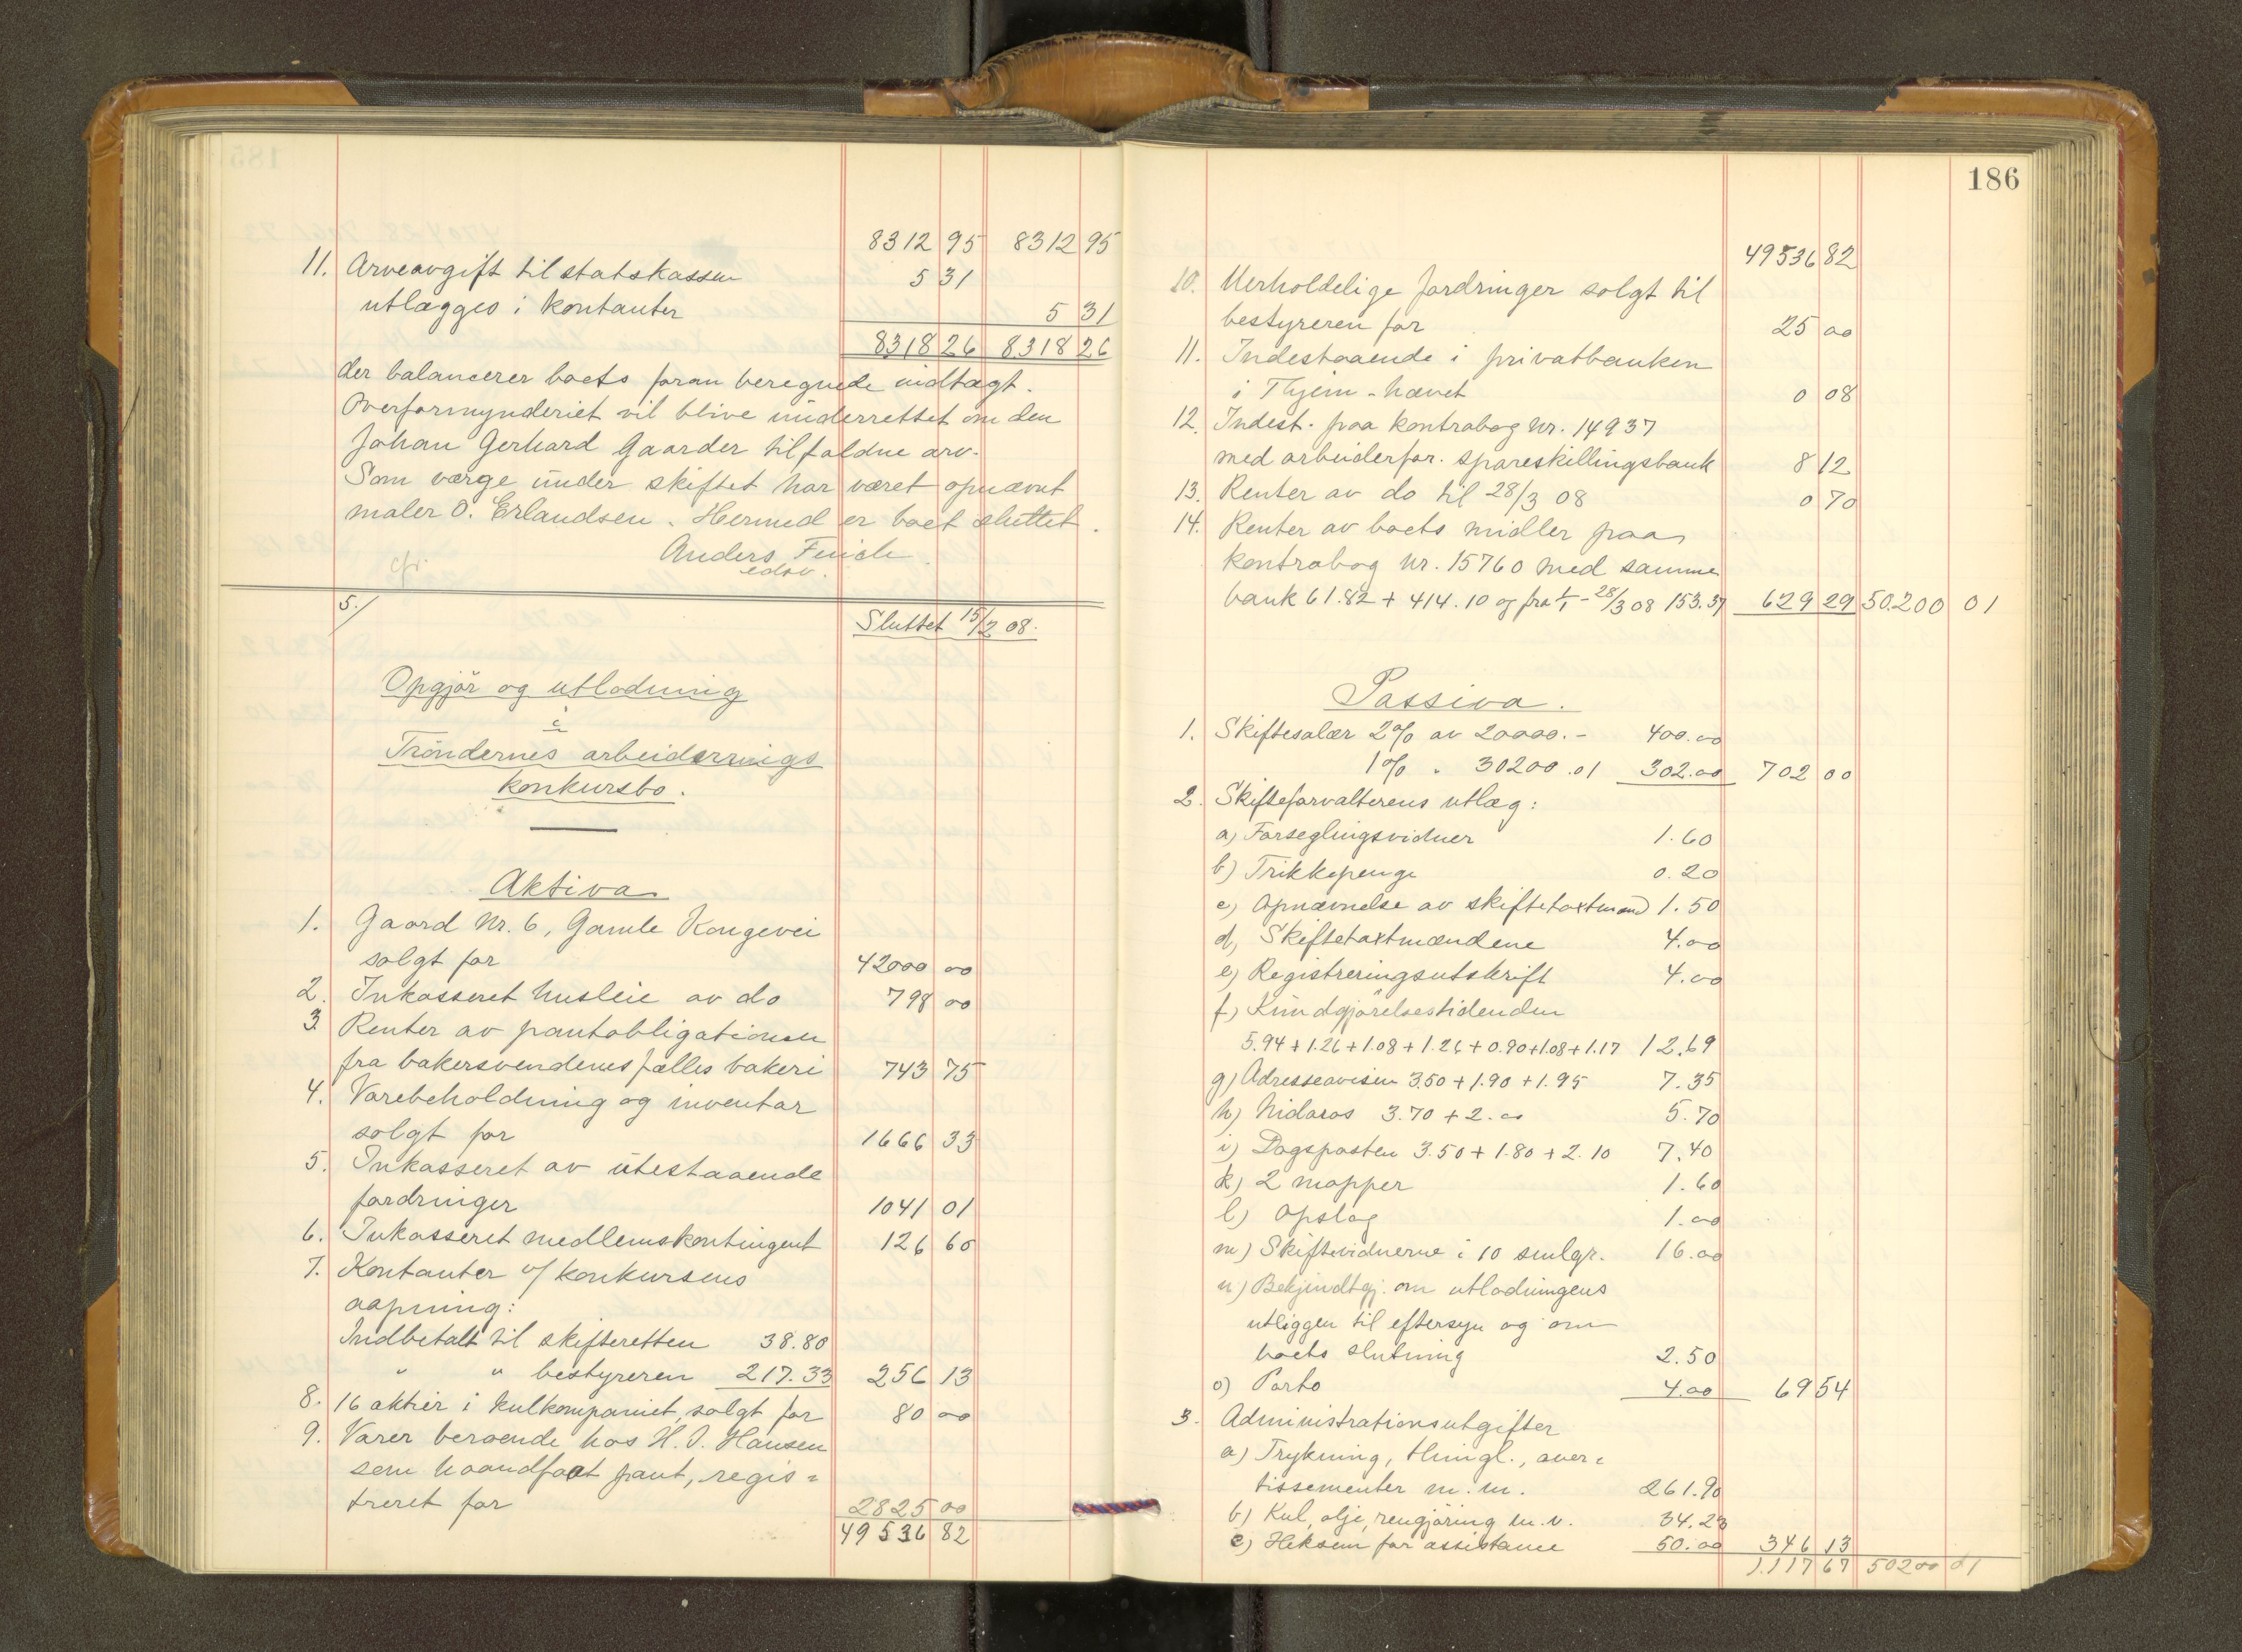 8312 95 8312 95
11. Arveavgift til statskassen 5 31
utlægges i kontanter 5 31
8318 26 8318 26
der balancerer boets foran beregnede indtægt.
Overformynderiet vil blive underrettet om den
Johan Gerhard Gaarder tilfaldne arv.
Som værge under skiftet har været opnævnt
maler O. Erlandsen. Hermed er boet sluttet.
Anders
edsv.
cfr.
5./
Sluttet 15/2 08.
Opgjör og utlodning
i
Tröndernes arbeiderrings
konkursbo.
Aktiva
1. Gaard Nr. 6, Gamle Kongevei
solgt for 42000 00
2. Inkasseret husleie av do 798 00
3. Renter av pantobligationen
fra bakersvendenes fælles bakeri 743 75
4. Varebeholdning og inventar
solgt for 1666 33
5. Inkasseret av utestaaende
fordringer 1041 01
6. Inkasseret medlemskontingent 126 60
7. Kontanter v/ konkursens
aapning:
Indbetalt til skifteretten 38.80
" " bestyreren 217.33 256 13
8. 16 aktier i kulkompaniet, solgt for 80 00
9. Varer beroende hos H. O. Hansen
som haandfaat pant, regis=
treret for 2825 00
49536 82
186
49536 82
10. Uerholdelige fordringer solgt til
bestyreren for 25 00
11. Indestaaende i privatbanken
i Thjem - hævet 0 08
12. Indest. paa kontrabog Nr. 14937
med arbeiderfor. spareskillingsbank 8 12
13. Renter av do til 28/3 08 0 70
14. Renter av boets midler paa
kontrabog Nr. 15760 med samme
bank 61.82 + 414.10 og fra 1/1 - 28/3 08 153.37 629 29 50.200 01
Passiva.
1. Skiftesalær 2% av 20000.- 400.00
1% " 30200.01 302.00 702 00
2. Skifteforvalterens utlæg:
a) Forseglingsvidner 1.60
b) Trikkepenge 0.20
c) Opnævnelse av skiftetaxtmænd 1.50
d) Skiftetaxtmændene 4.00
e) Registreringsutskrift 4.00
f) Kundgjörelsestidenden
5.94 + 1.26 + 1.08 + 1.26 + 0.90 + 1.08 + 1.17 12.69
g) Adresseavisen 3.50 + 1.90 + 1.95 7.35
h) Nidaros 3.70 + 2.00 5.70
i) Dagsposten 3.50 + 1.80 + 2.10 7.40
k) 2 mapper 1.60
l) Opslag 1.00
m) Skiftevidnerne i 10 smlgr. 16.00
n) Bekjendtgj. om utlodningens
utliggen til eftersyn og om
boets slutning 2.50
o) Porto 4.00 69 54
3. Administrationsutgifter
a) Trykning, thingl., aver=
tissementer m.m. 261.90
b) Kul, olje, rengjöring m.v. 34.23
c) Heksem for assistance 50.00 346 13
1.117 67 50200 01